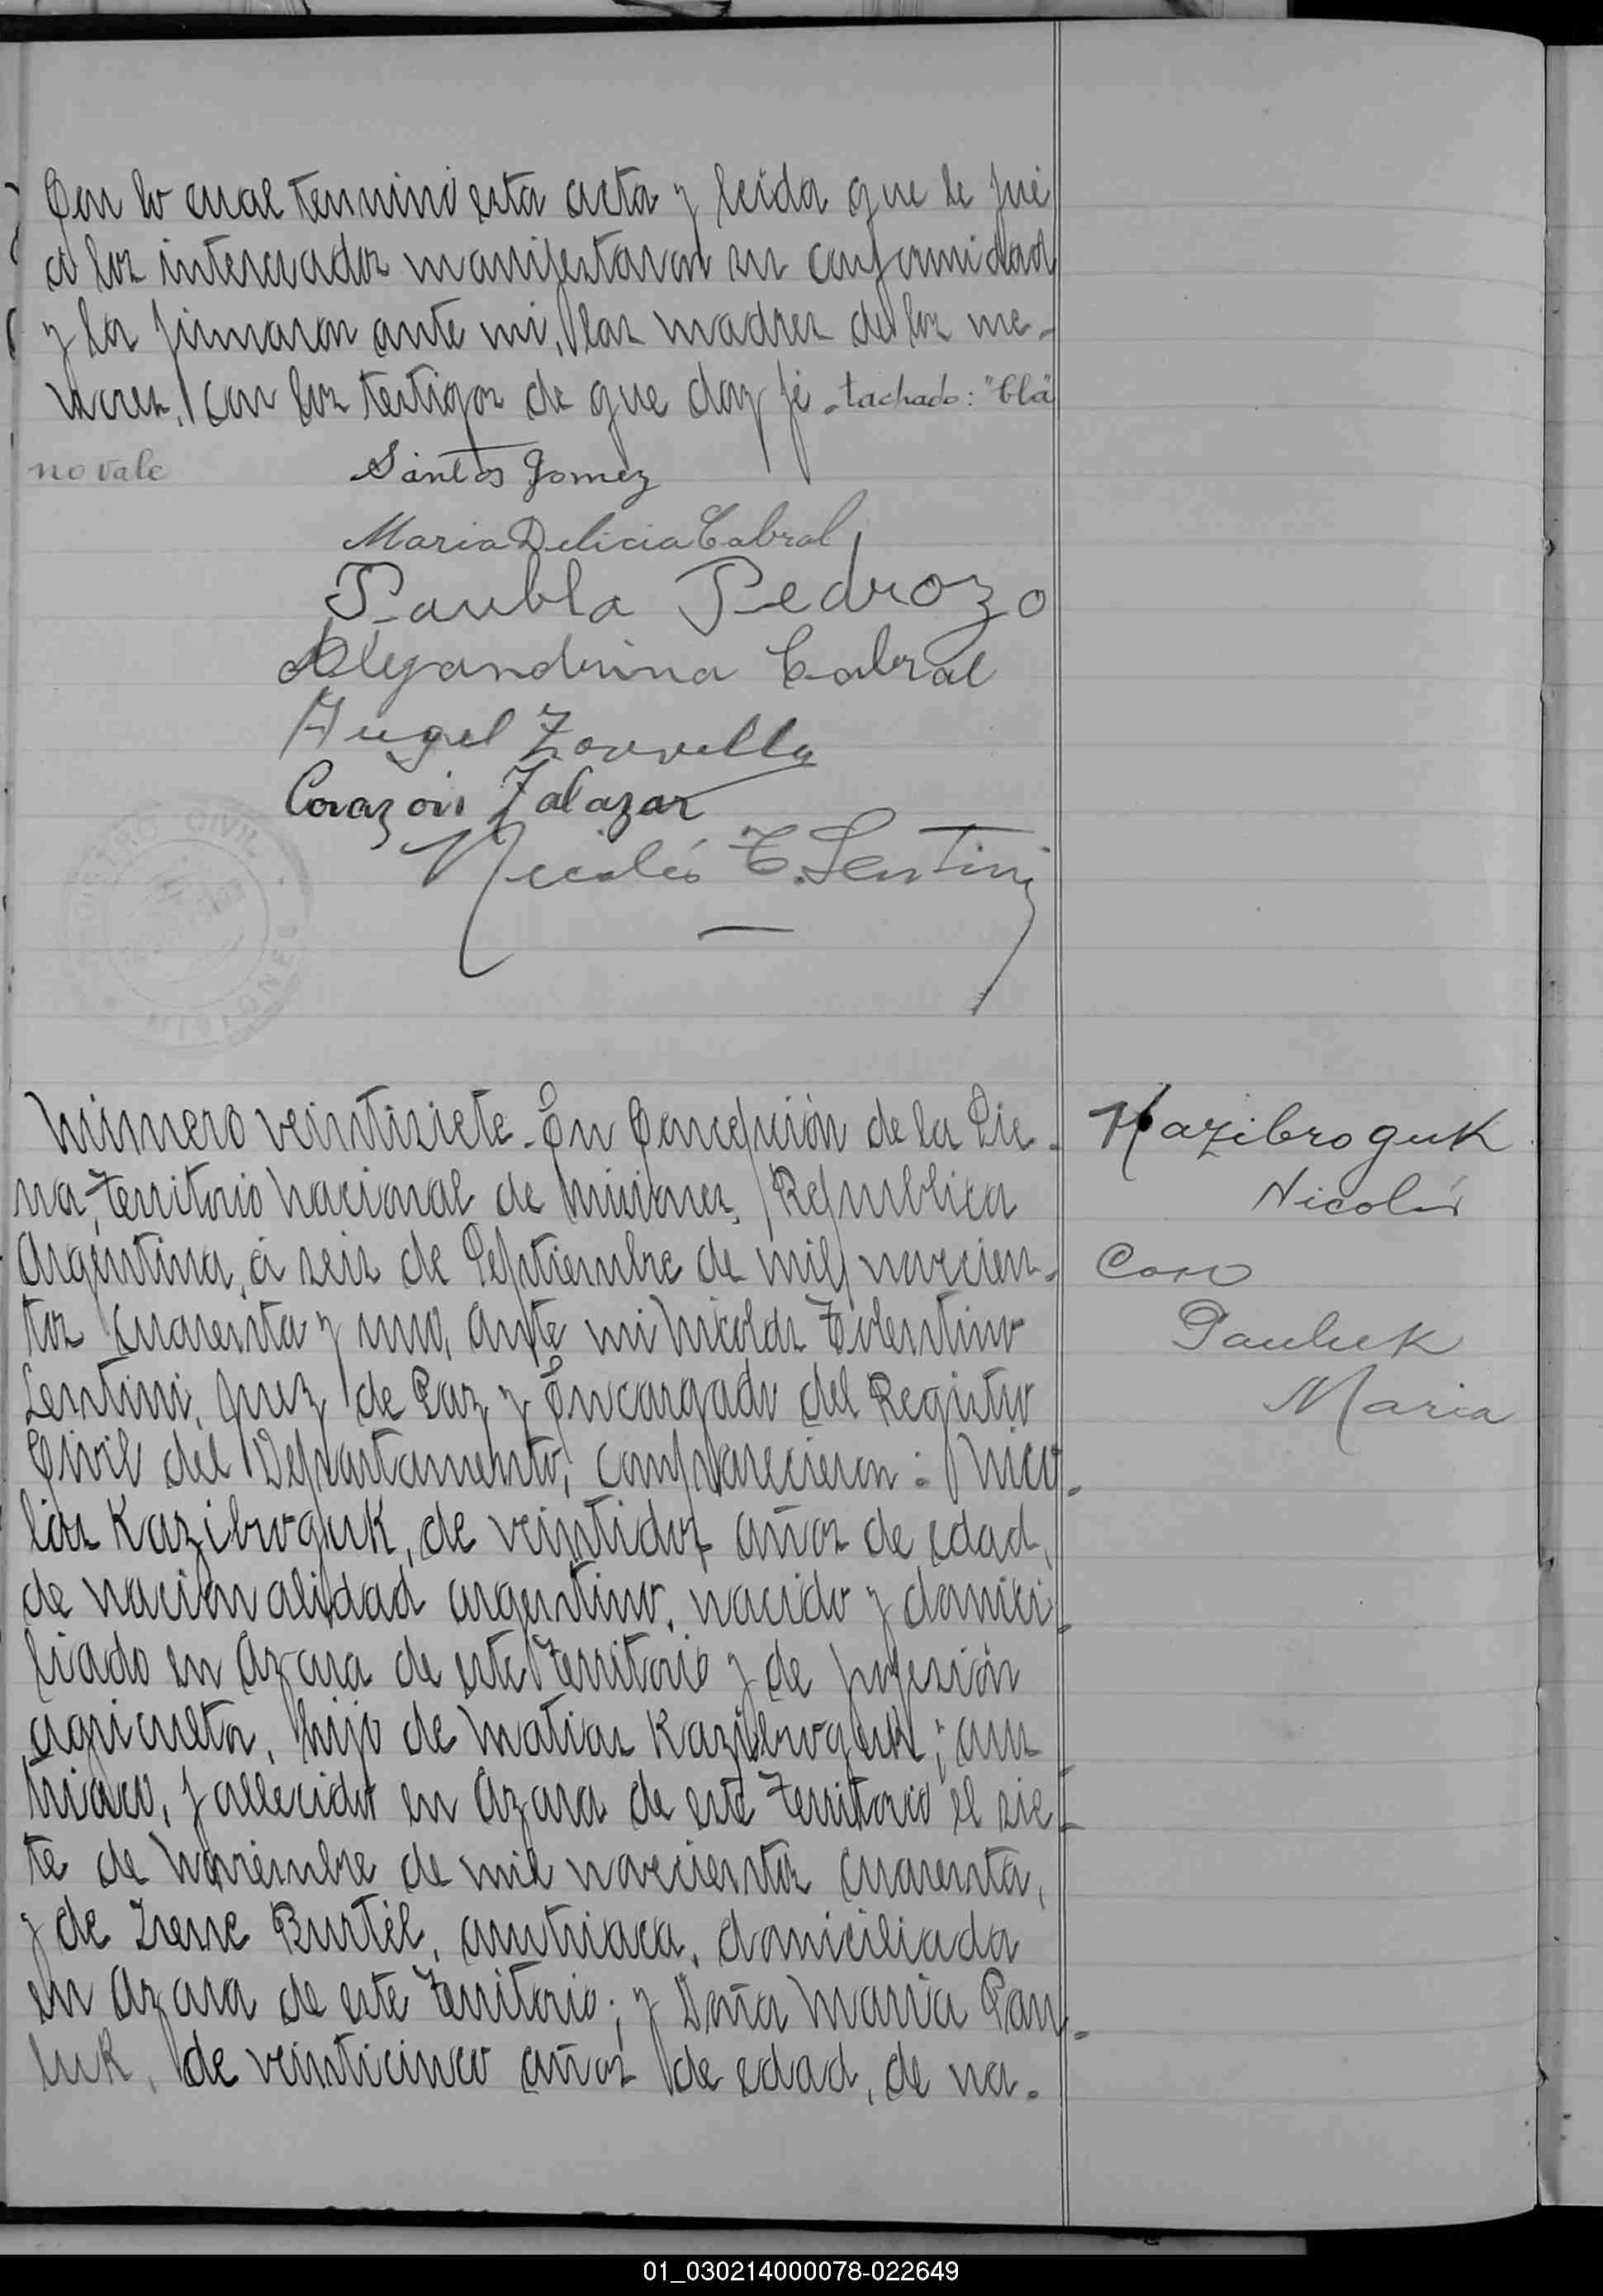 Con lo cual terminó esta acta y leída que le fué
a los interesados manifestaron su conformidad
y la firmaron ante mi, las madres de los me-
nores, con los testigos de que doy fé.- tachado: "bla"
no vale
Santos Gomez
Maria Delicia Cabral
Paubla Pedrozo
Alejandrina Cabral
Angel Zorrilla
Corazon Zalazar
Nicolás T. Lentini
REGISTRO CIVIL
MISIONES
Número veintisiete. En Concepción de la Sie-
rra, Territorio Nacional de Misiones, República
Argentina, á seis de Septiembre de mil novecien-
tos cuarenta y uno, ante mi Nicolás Tolentino
Lentini, Juez de Paz y Encargado del Registro
Civil del Departamento, comparecieron: Nico-
lás Kazibroguk, de veintidos años de edad,
de nacionalidad argentino, nacido y domici-
liado en Azara de este Territorio y de profesión
agricultor, hijo de Matias Kazibroguk, aus-
triaco, fallecido en Azara de este Territorio el sie-
te de Noviembre de mil novecientos cuarenta,
y de Irene Burtel, austriaca, domiciliada
en Azara de este Territorio; y Doña Maria Pau-
luk, de veinticinco años de edad, de na-
Kazibroguk
Nicolás
Con
Pauluk
Maria
01_030214000078-022649